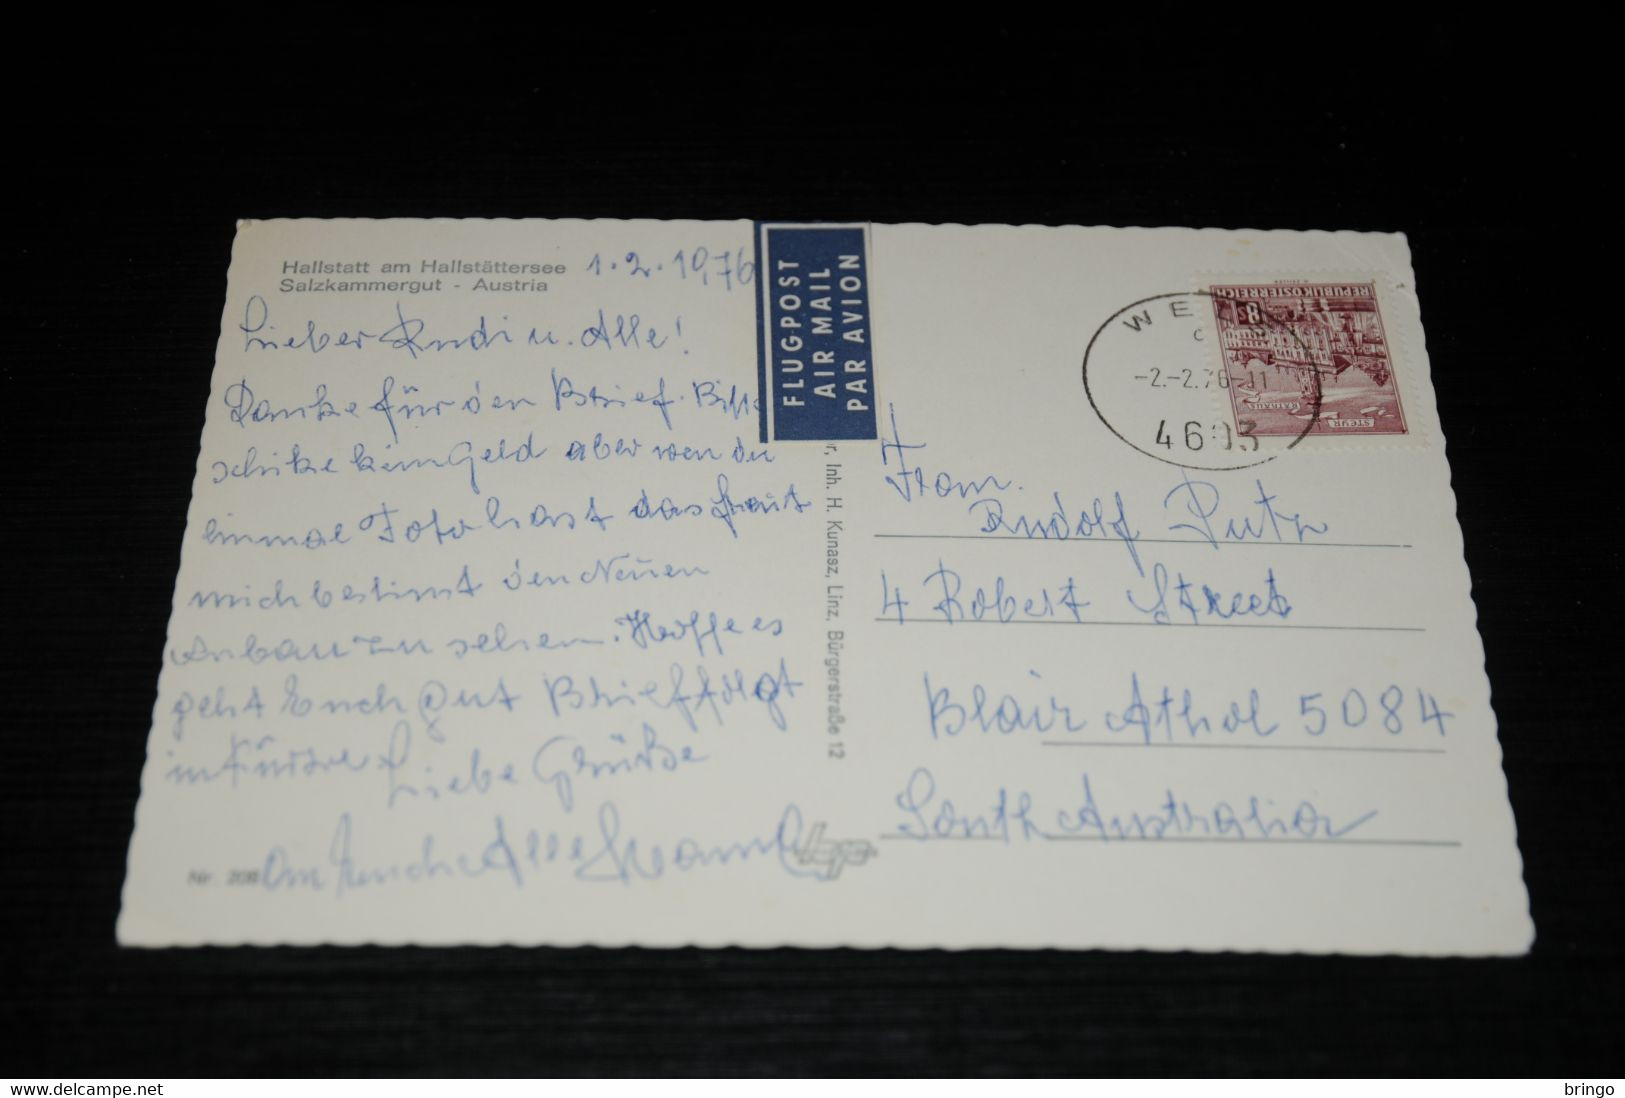 Hallstatt am Hallstättersee
Salzkammergut - Austria
1.2.1976
Lieber Rudi u. Alle!
Danke für den Brief. Bitte
schike kein Geld aber wen du
einmal Foto hast das freut
mich bestimt den Neuen
Anbau zu sehen. Hoffe es
geht Euch gut Brief folgt
in Kürze
Liebe Grüße
an Euch Alle
Nr. 208
FLUGPOST
AIR MAIL
PAR AVION
Inh. H. Kunasz, Linz, Bürgerstraße 12
WELS
-2.-2.76-11
4603
REPUBLIK ÖSTERREICH
8S
STEYR
RATHAUS
Rudolf Putz
4 Robert Street
Blair Athol 5084
South Australia
bringo